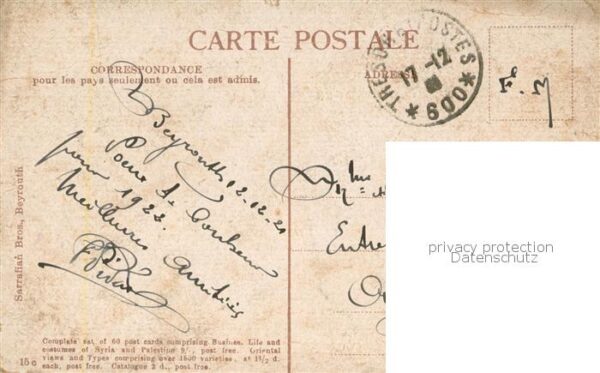 CARTE POSTALE
CORRESPONDANCE
pour les pays seulement ou cela est admis.
ADRESSE
TRESOR ET POSTES
17-12
*600*
F. M
Beyrouth 12-12-21
Pour le bonheur
pour 1922.
Meilleures amitiés
Mme
Entre
privacy protection
Datenschutz
Sarrafian Bros., Beyrouth
Complete set of 60 post cards comprising Busines. Life and
costumes of Syria and Palestine 9/, post free. Oriental
views and Types comprising over 1500 varieties, at 1 1/2 d.
each, post free. Catalogue 2 d., post free.
15 c